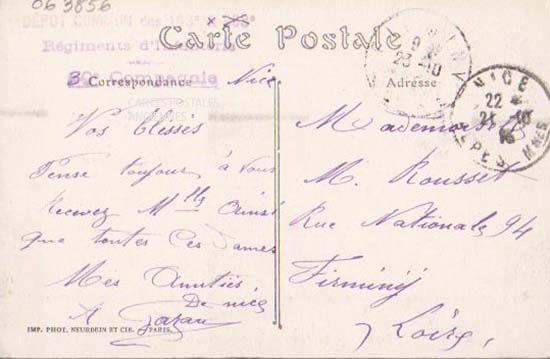 063856
DÉPOT COMMUN des 163e & 203e
Régiments d'Infanterie
Compagnie
Carte Postale
Correspondance
Adresse
CARTES POSTALES
ANCIENNES
Nice
Vos blessés
Pense toujours à vous
Recevez Mlle Ainsi
que toutes Ces dames
Mes Amitiés
De nice
A
NICE
22
21-10
ALPES MMES
9
23-10
Mademoiselle
M. Rousset
Rue Nationale 94
Firminy
Loire
IMP. PHOT. NEURDEIN ET CIE. PARIS.